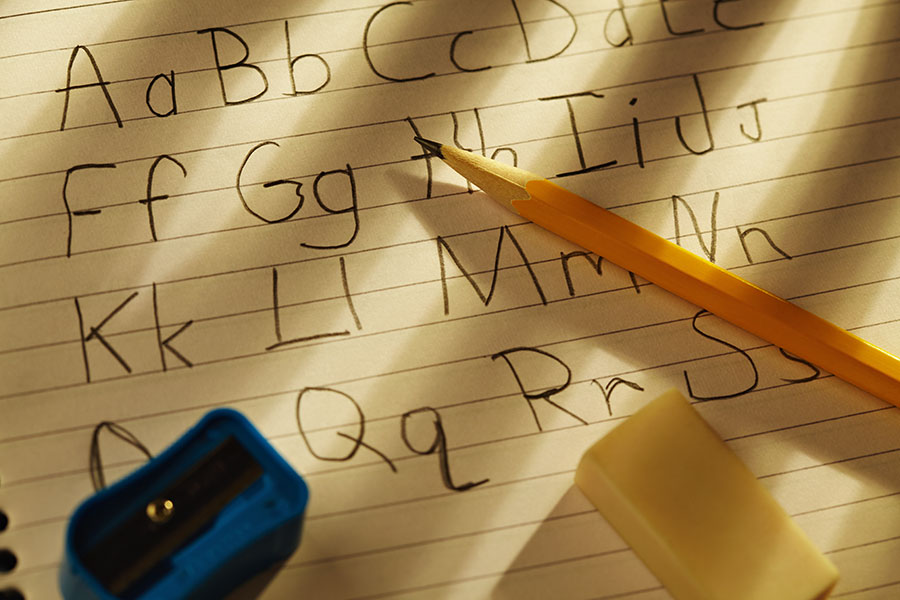 Aa Bb Cc Dd Ee
Ff Gg Hh Ii Jj
Kk Ll Mm Nn
Qq Rr Ss